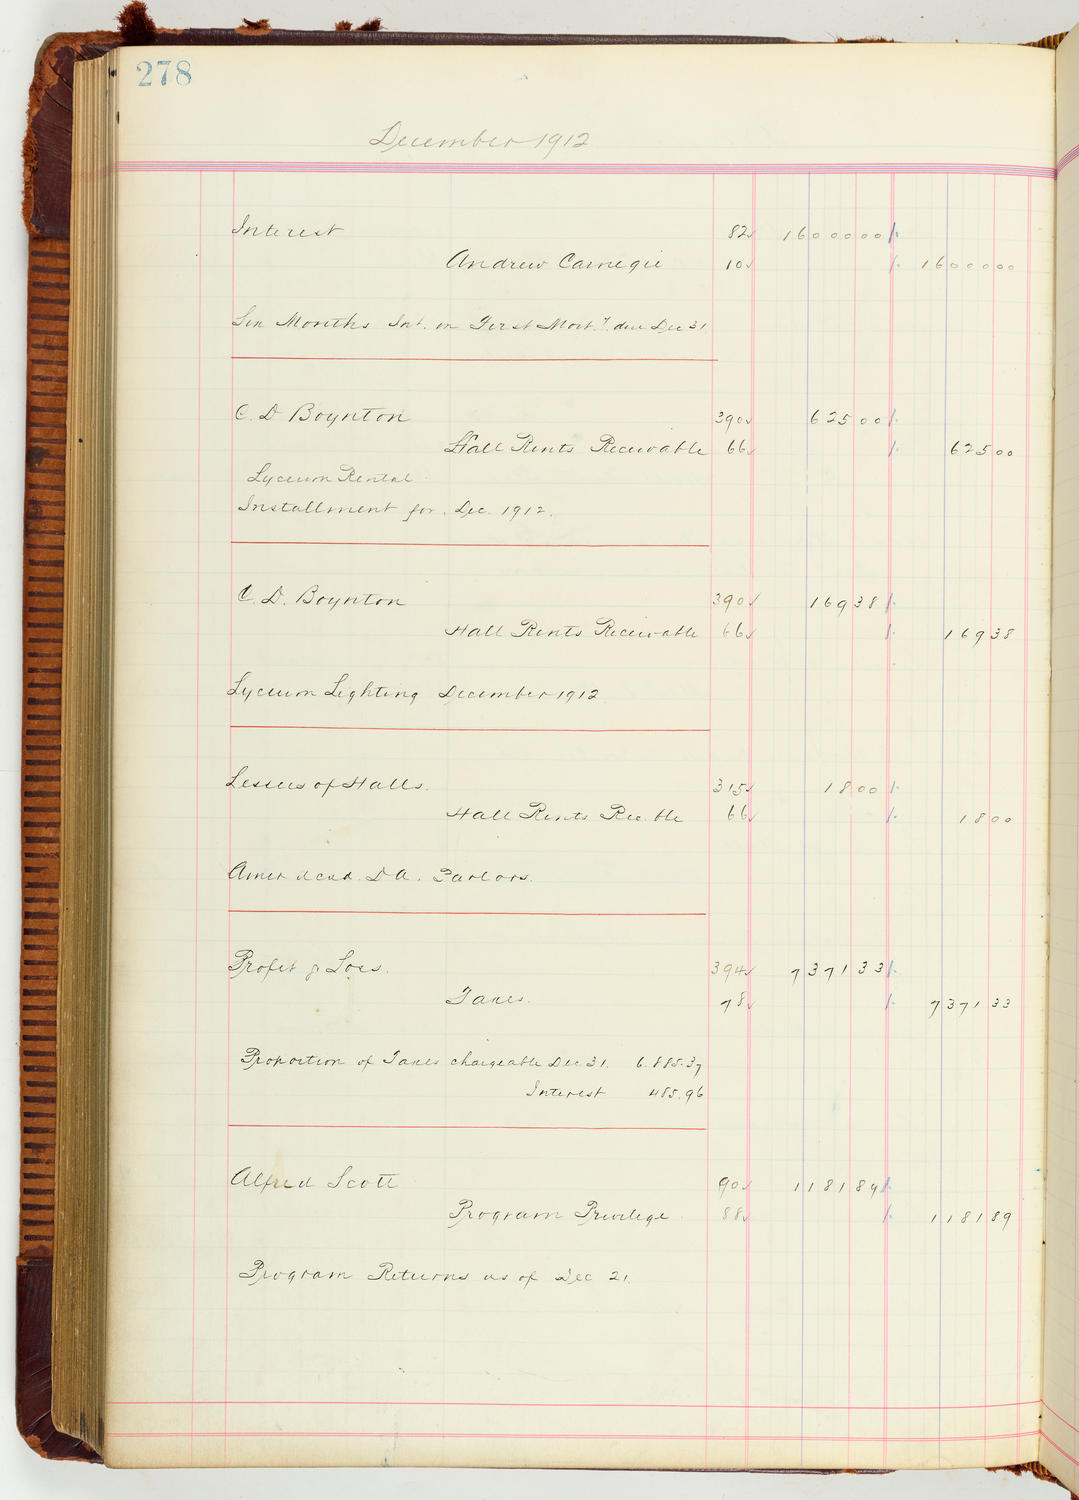 278
December 1912
Interest 82 1600000
Andrew Carnegie 10 1600000
Six Months Int. on First Mort. due Dec 31
C. D Boynton 390 62500
Hall Rents Receivable 66 62500
Lyceum Rental
Installment for Dec. 1912.
C. D. Boynton 390 16938
Hall Rents Receivable 66 16938
Lyceum Lighting December 1912
Lessees of Halls. 315 1800
Hall Rents Rec.ble 66 1800
Amer Acad. D A. Parlors.
Profit & Loss. 394 737133
Taxes. 78 737133
Proportion of Taxes chargeable Dec 31. 6.885.37
Interest 485.96
Alfred Scott 90 118189
Program Privilege 88 118189
Program Returns as of Dec 21.